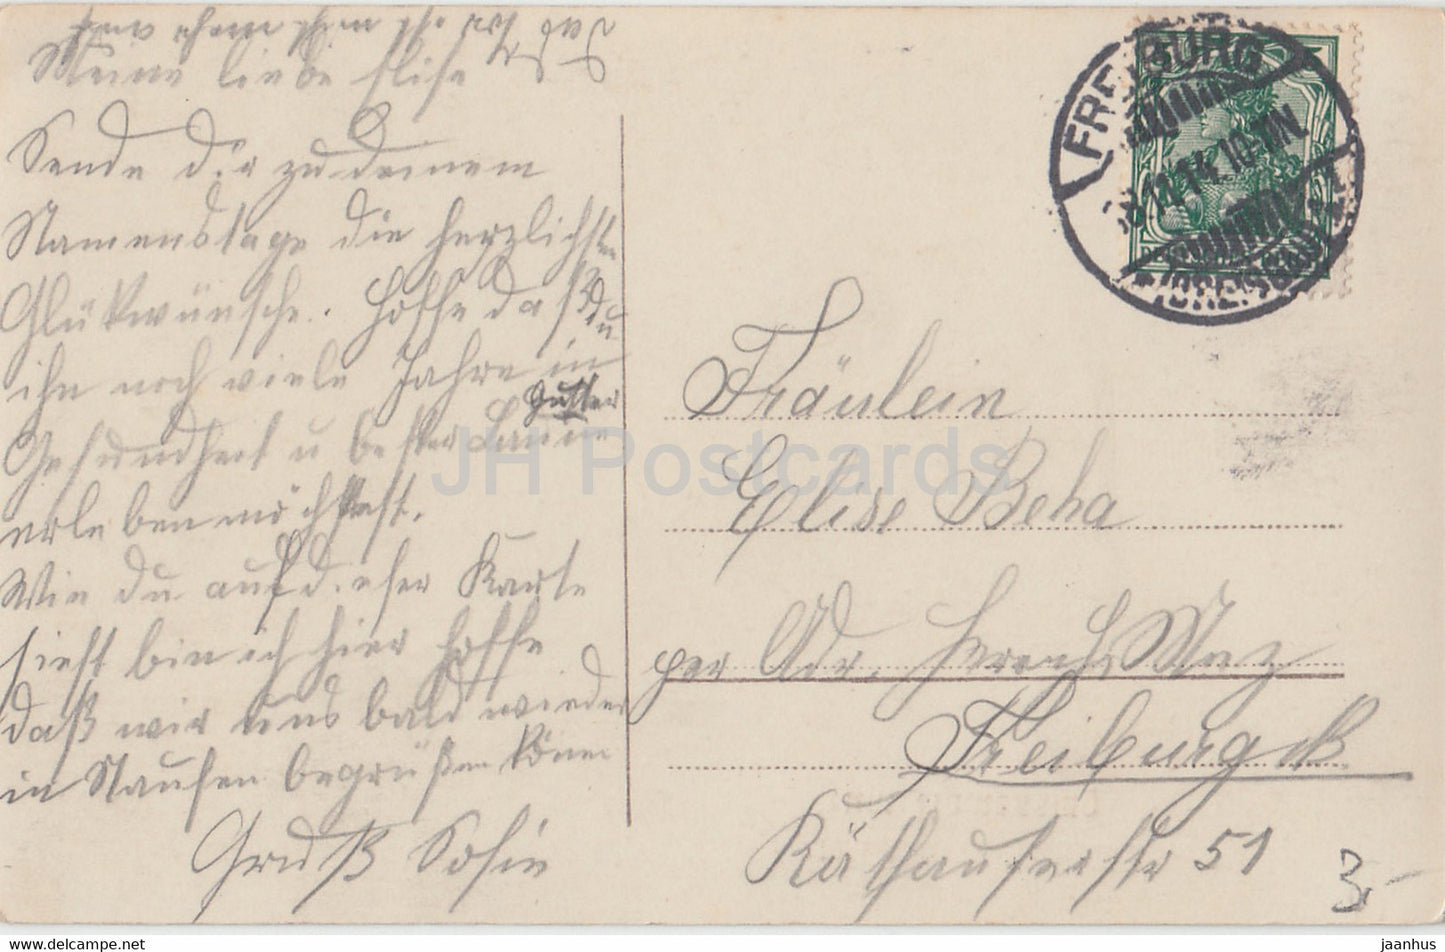 Meine liebe Elise
Sende dir zu deinem
Namenstage die herzlichsten
Glükwünsche. Hoffe daß du
ihn noch viele Jahre in
Gesundheit u bester guter Laune
erleben möchtest.
Wie du auf dieser Karte
siehst bin ich hier hoffe
daß wir uns bald wieder
in Staufen begrüßen könen
Gruß Sofie
FREIBURG
.11.14.10-11N
(BREISGAU)
Fräulein
Elise Beha
per Adr.
Freiburg
Karthäuserstr 51
3,-
JH Postcards
www.delcampe.net
jaanhus